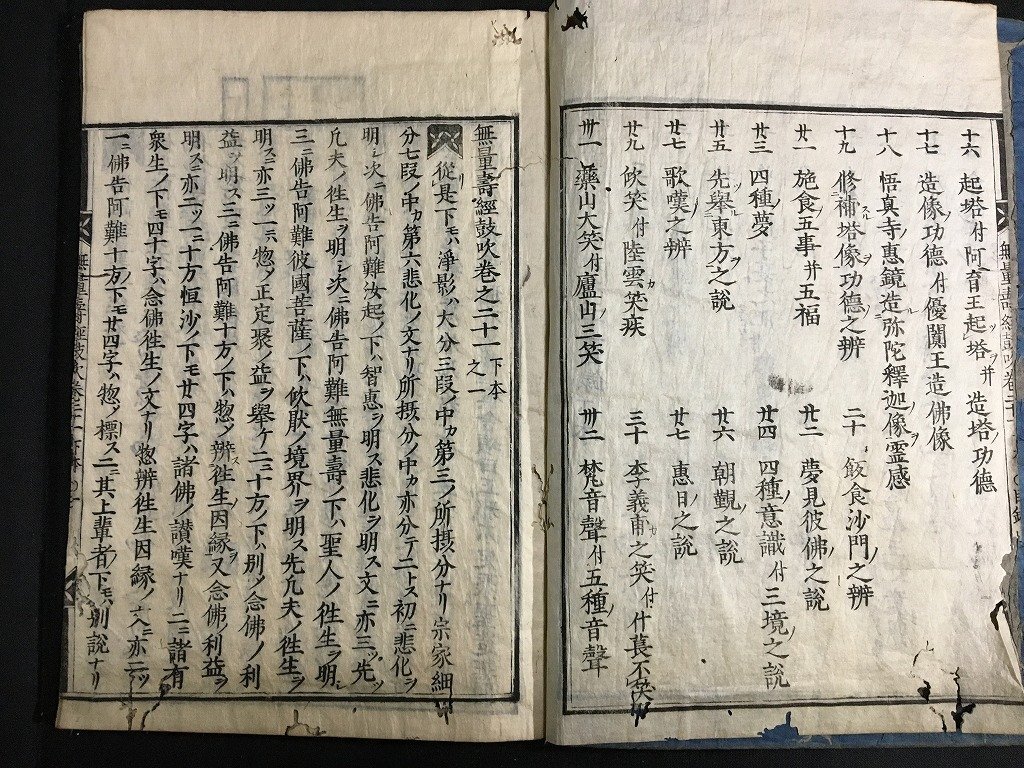 十六 起塔付阿育王起塔ヲ并造塔ノ功德
十七 造像ノ功德付優闐王造佛像
十八 悟真寺ノ惠鏡造ル弥陀釋迦像ヲ霊感
十九 修補スル塔像ヲ功德之辨
二十 飯食沙門ノ之辨
廿一 施食ノ五事并五福
廿二 夢見彼佛ヲ之説
廿三 四種ノ夢
廿四 四種ノ意識付三境之説
廿五 先舉ル東方ヲ之説
廿六 朝覲ノ之説
廿七 歌嘆ノ之辨
廿七 惠日ノ之説
廿九 欣笑ノ付陸雲カ笑疾
三十 李義甫カ之笑付什萇不笑
卅一 藥山大笑付廬山ノ三笑
卅二 梵音聲付五種ノ音聲
無量壽經鼓吹卷之二十一 下本之一
從リ是下モハ淨影ハ大分三段ノ中カ第三ノ所摂分ナリ宗家細ニ
分七段ノ中カ第六悲化ノ文ナリ所摂分ノ中カ亦分テ二トス初ニ悲化ヲ
明シ次ニ佛告阿難汝起ノ下ハ智惠ヲ明ス悲化ヲ明ス文ニ亦三ツ先ツ
凡夫ノ徃生ヲ明シ次ニ佛告阿難無量壽ノ下ハ聖人ノ徃生ヲ明シ
三ニ佛告阿難彼國菩薩ノ下ハ欣猒ノ境界ヲ明ス先凡夫ノ徃生ヲ
明スニ亦三ツ一ニハ惣ノ正定聚ノ益ヲ舉ケ二ニ十方ノ下ハ別ノ念佛ノ利
益ヲ明ス三ニ佛告阿難十方ノ下ハ惣ノ辨ス徃生ノ因縁ヲ又念佛ノ利益ヲ
明スニ亦二ツ一ニ十方恒沙ノ下モ廿四字ハ諸佛ノ讃嘆ナリ二ニ諸有
衆生ノ下モ四十字ハ念佛徃生ノ文ナリ惣辨徃生因縁ノ文ニ亦二ツ
一ニ佛告阿難十方ノ下モ廿四字ハ惣ノ標ス二ニ其上輩者ノ下モハ別説ナリ